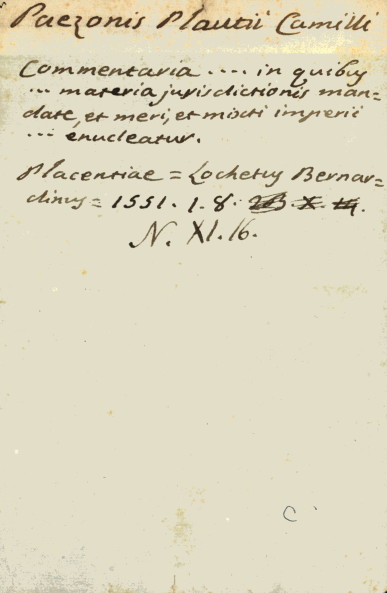 Paezonis Plautii Camilli
Commentaria .... in quibus
... materia jurisdictionis man=
datc, et meri, et mixti imperii
... enucleatur.
Placentiae = Lochetus Bernar=
dinus = 1551. 1. 8. X.
N. XI. 16.
C